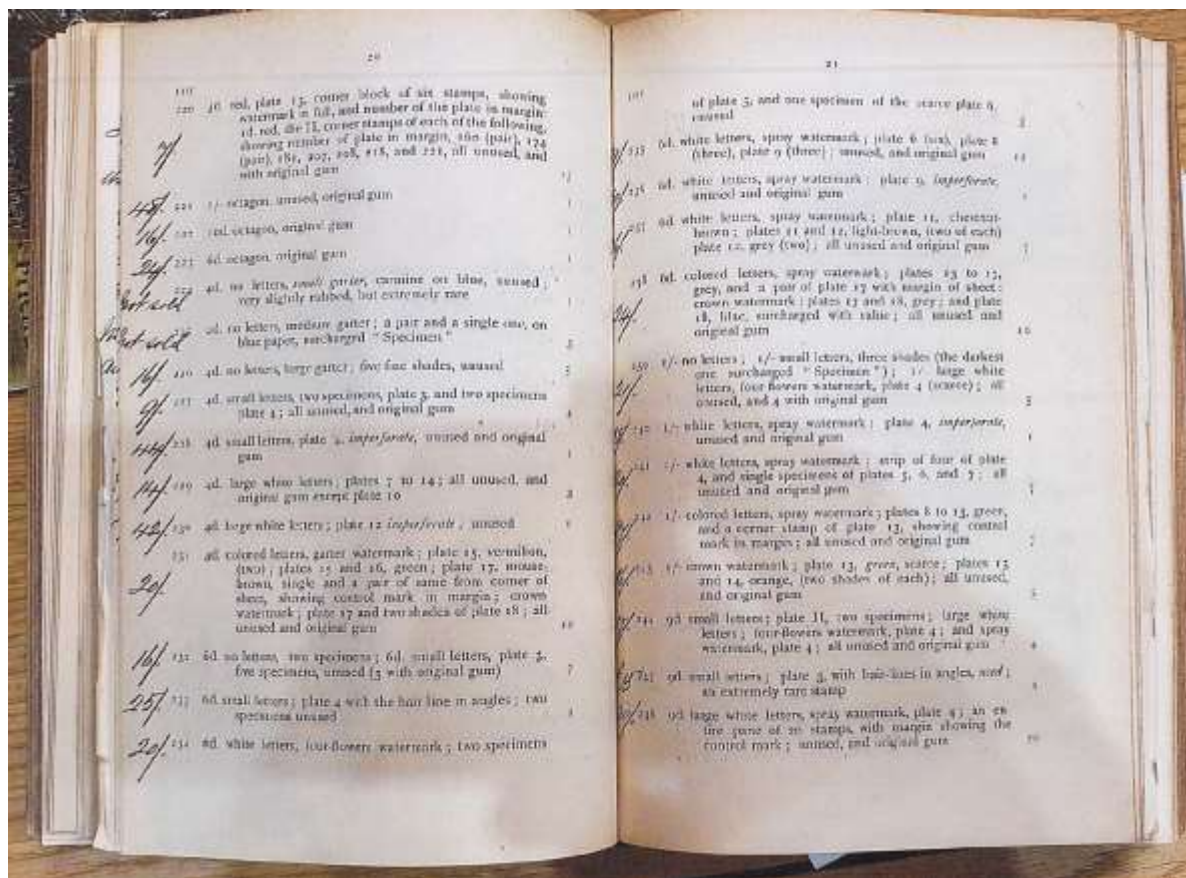 20
220 4d. red, plate 13, corner block of six stamps, showing
watermark in full, and number of the plate in margin:
1d. red, die II, corner stamps of each of the following,
showing number of plate in margin, 160 (pair), 174
(pair), 181, 207, 208, 218, and 221, all unused, and
with original gum
7/
48/- 221 1/- octagon, unused, original gum
16/- 222 10d. octagon, original gum
24/- 223 6d. octagon, original gum
not sold 4d. no letters, small garter, carmine on blue, unused;
very slightly rubbed, but extremely rare
not sold 4d. no letters, medium garter; a pair and a single one, on
blue paper, surcharged "Specimen"
16/- 226 4d. no letters, large garter; five fine shades, unused
9/- 227 4d. small letters, two specimens, plate 3, and two specimens
plate 4; all unused, and original gum
228 4d. small letters, plate 4, imperforate, unused and original
gum
14/- 229 4d. large white letters; plates 7 to 14; all unused, and
original gum except plate 10
42/- 230 4d. large white letters; plate 12 imperforate, unused
231 4d. colored letters, garter watermark; plate 15, vermilion,
(two); plates 15 and 16, green; plate 17, mouse-
brown, single and a pair of same from corner of
sheet, showing control mark in margin; crown
watermark; plate 17 and two shades of plate 18; all
unused and original gum
20/-
16/- 232 6d. no letters, two specimens; 6d. small letters, plate 3,
five specimens, unused (3 with original gum) 7
25/- 233 6d. small letters; plate 4 with the hair line in angles; two
specimens unused
20/- 234 6d. white letters, four-flowers watermark; two specimens
21
of plate 5, and one specimen of the scarce plate 6,
unused
235 6d. white letters, spray watermark; plate 6 (six), plate 8
(three), plate 9 (three); unused, and original gum 12
236 6d. white letters, spray watermark: plate 9, imperforate,
unused and original gum
237 6d. white letters, spray watermark; plate 11, chestnut-
brown; plates 11 and 12, light-brown, (two of each)
plate 12, grey (two); all unused and original gum
238 6d. colored letters, spray watermark; plates 13 to 17,
grey, and a pair of plate 17 with margin of sheet:
crown watermark: plates 17 and 18, grey; and plate
18, lilac, surcharged with value; all unused and
original gum 10
239 1/- no letters; 1/- small letters, three shades (the darkest
one surcharged "Specimen"); 1/- large white
letters, four-flowers watermark, plate 4 (scarce); all
unused, and 4 with original gum 5
240 1/- white letters, spray watermark: plate 4, imperforate,
unused and original gum
241 1/- white letters, spray watermark; strip of four of plate
4, and single specimens of plates 5, 6, and 7; all
unused and original gum 7
242 1/- colored letters, spray watermark; plates 8 to 13, green,
and a corner stamp of plate 13, showing control
mark in margin; all unused and original gum 7
243 1/- crown watermark; plate 13, green, scarce; plates 13
and 14, orange, (two shades of each); all unused,
and original gum 5
244 9d. small letters; plate II, two specimens; large white
letters; four-flowers watermark, plate 4; and spray
watermark, plate 4; all unused and original gum 4
245 9d. small letters; plate 3, with hair-lines in angles, used;
an extremely rare stamp
246 9d. large white letters, spray watermark, plate 4; an en
tire pane of 20 stamps, with margin showing the
control mark; unused, and original gum 20